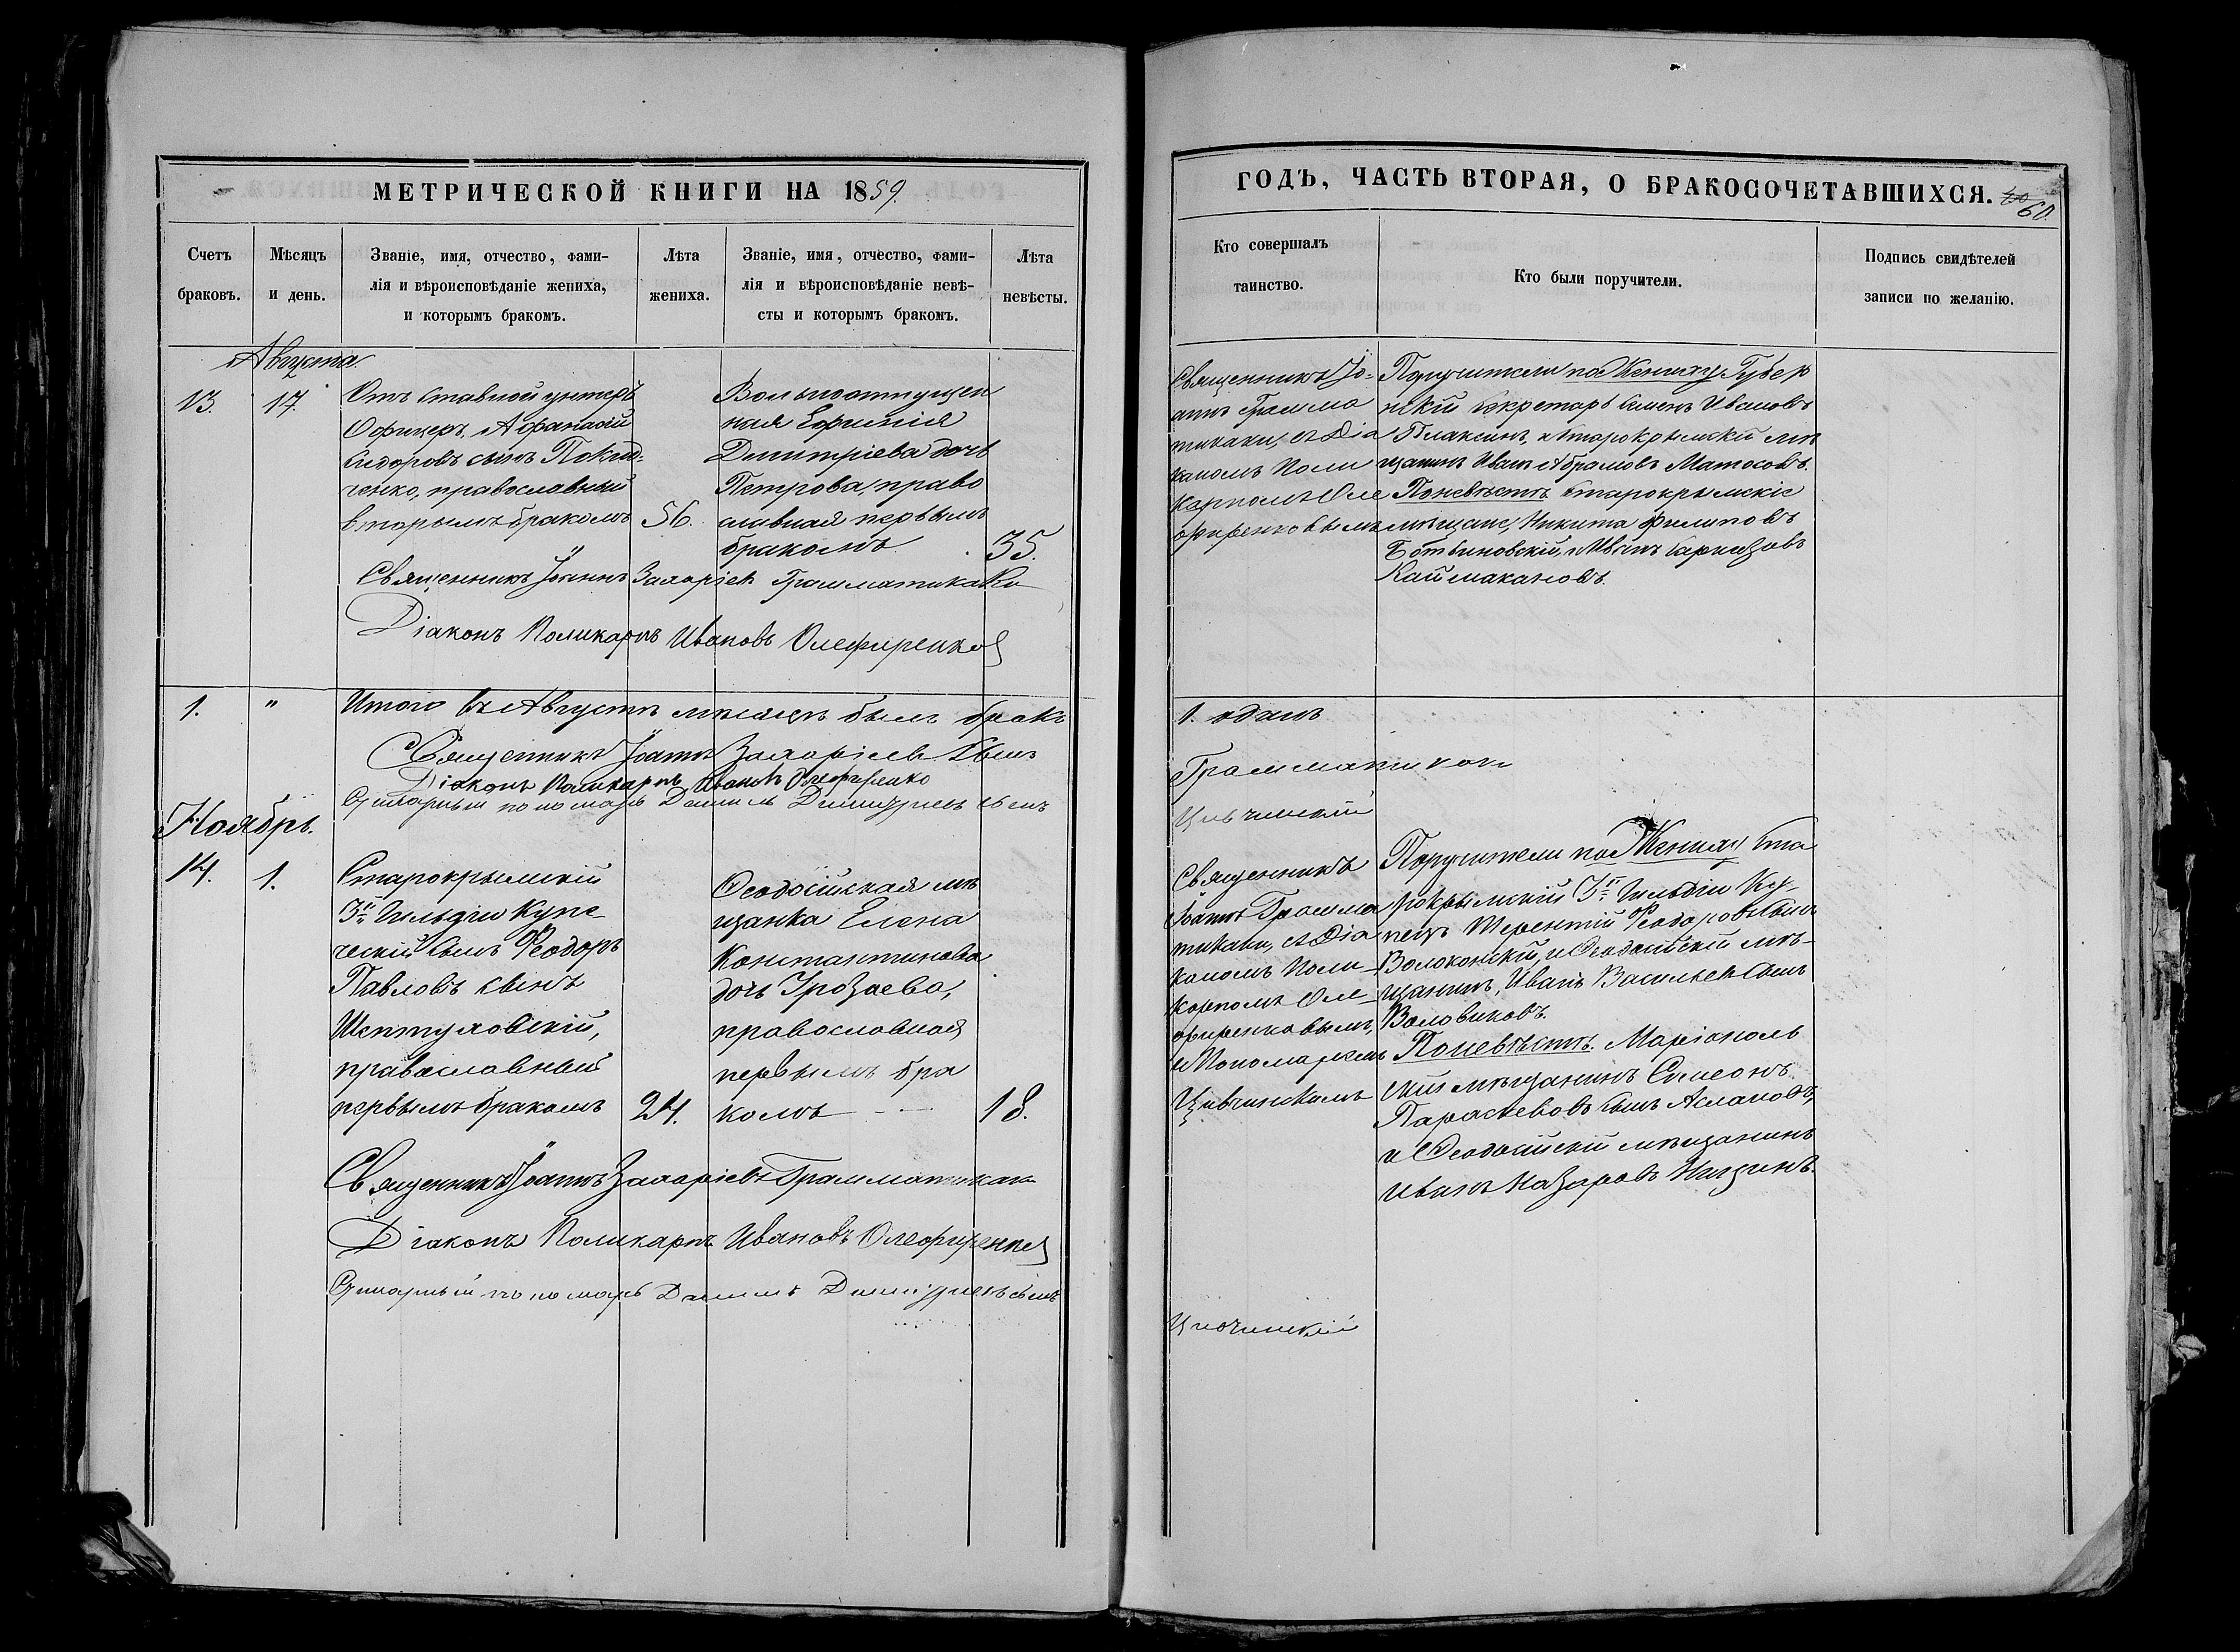 МЕТРИЧЕСКОЙ КНИГИ НА 1859.
Счетъ браковъ.
Мѣсяцъ и день.
Званіе, имя, отчество, фами-
лія и вѣроисповѣданіе жениха,
и которымъ бракомъ.
Лѣта
жениха.
Званіе, имя, отчество, фами-
лія и вѣроисповѣданіе невѣ-
сты и которымъ бракомъ.
Лѣта
невѣсты.
Августа.
13.
17.
Отъставной унтеръ
Офицеръ, Афанасій
Сидоровъ сынъ
ченко, православный
вторымъ бракомъ
56.
Вольноотпущен
ная Ефимія
Димитріева дочь
Петрова, право
славная первымъ
бракомъ
35.
Священникъ Іоаннъ Захаріевъ Грамматикаки
Діаконъ Поликарпъ Ивановъ Олефиренко
1.
"
Итого въ Августѣ мѣсяцѣ былъ бракъ
Священникъ Іоаннъ Захаріевъ сынъ
Діаконъ Поликарпъ Ивановъ Олефиренко
пономарь Даніилъ сынъ
Ноябрь.
14.
1.
Старокрымскій
3й Гильдіи купе
ческій сынъ Феодоръ
Павловъ сынъ
православный
первымъ бракомъ
24.
Феодосійская мѣ
щанка Елена
Константинова
дочь Грозаева,
православная
первымъ бра
комъ
18.
Священникъ Іоаннъ Захаріевъ Грамматикаки
Діаконъ Поликарпъ Ивановъ Олефиренко
пономарь Даніилъ сынъ
ГОДЪ, ЧАСТЬ ВТОРАЯ, О БРАКОСОЧЕТАВШИХСЯ.
60.
Кто совершалъ
таинство.
Кто были поручители.
Подпись свидѣтелей
записи по желанію.
Священникъ Іо-
аннъ Грамма
тикаки, съ Діа
кономъ Поли
карпомъ Оле
фиренковымъ
Поручители по Женихѣ Губер
нскій Секретарь Семенъ Ивановъ
Плаксинъ, и Старокрымскій мѣ
щанинъ Иванъ Абрамовъ Матосовъ.
По невѣстѣ Старокрымскіе
мѣщане, Никита Филиповъ
Каймакановъ.
1. одинъ
Грамматикаки
Священникъ
Іоаннъ Грамма
тикаки, съ Діа
кономъ Поли
карпомъ Оле
фиренковымъ,
и Пономаремъ
Поручители по Женихѣ Ста
рокрымскій 3й Гильдіи Ку-
пецъ Терентій Феодоровъ сынъ
Волоконскій, и Феодосійскій мѣ-
щанинъ, Иванъ Васильевъ сынъ
Воловиковъ.
По невѣстѣ. Маріаполь
скій мѣщанинъ Симеонъ
Параскевовъ сынъ Аслановъ,
и Феодосійскій мѣщанинъ
Иванъ Назаровъ